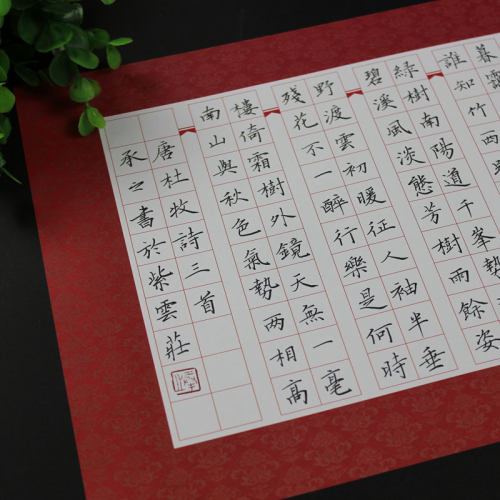 暮靄
誰知竹西
緑樹南陽道千峯勢
碧溪風淡態芳樹雨餘姿
野渡雲初暖征人袖半垂
残花不一醉行樂是何時
樓倚霜樹外鏡天無一毫
南山與秋色氣勢两相高
唐杜牧詩三首
承之書於紫雲莊